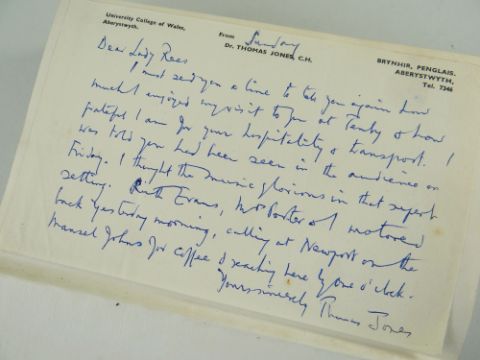 University College of Wales,
Aberystwyth.
From
Dr. THOMAS JONES, C.H.
BRYNHIR, PENGLAIS,
ABERYSTWYTH,
Tel. 7346
Sunday
Dear Lady Rees
I must send you a line to tell you again how
much I enjoyed my visit to you at Tenby & how
grateful I am for your hospitality & transport. I
was told you had been seen in the audience on
Friday. I thought the music glorious in that superb
setting. Ruth Evans, Mrs Porter & I motored
back yesterday morning, calling at Newport on the
Mansel Johns for coffee & reaching here by one o'clock.
Yours sincerely Thomas Jones